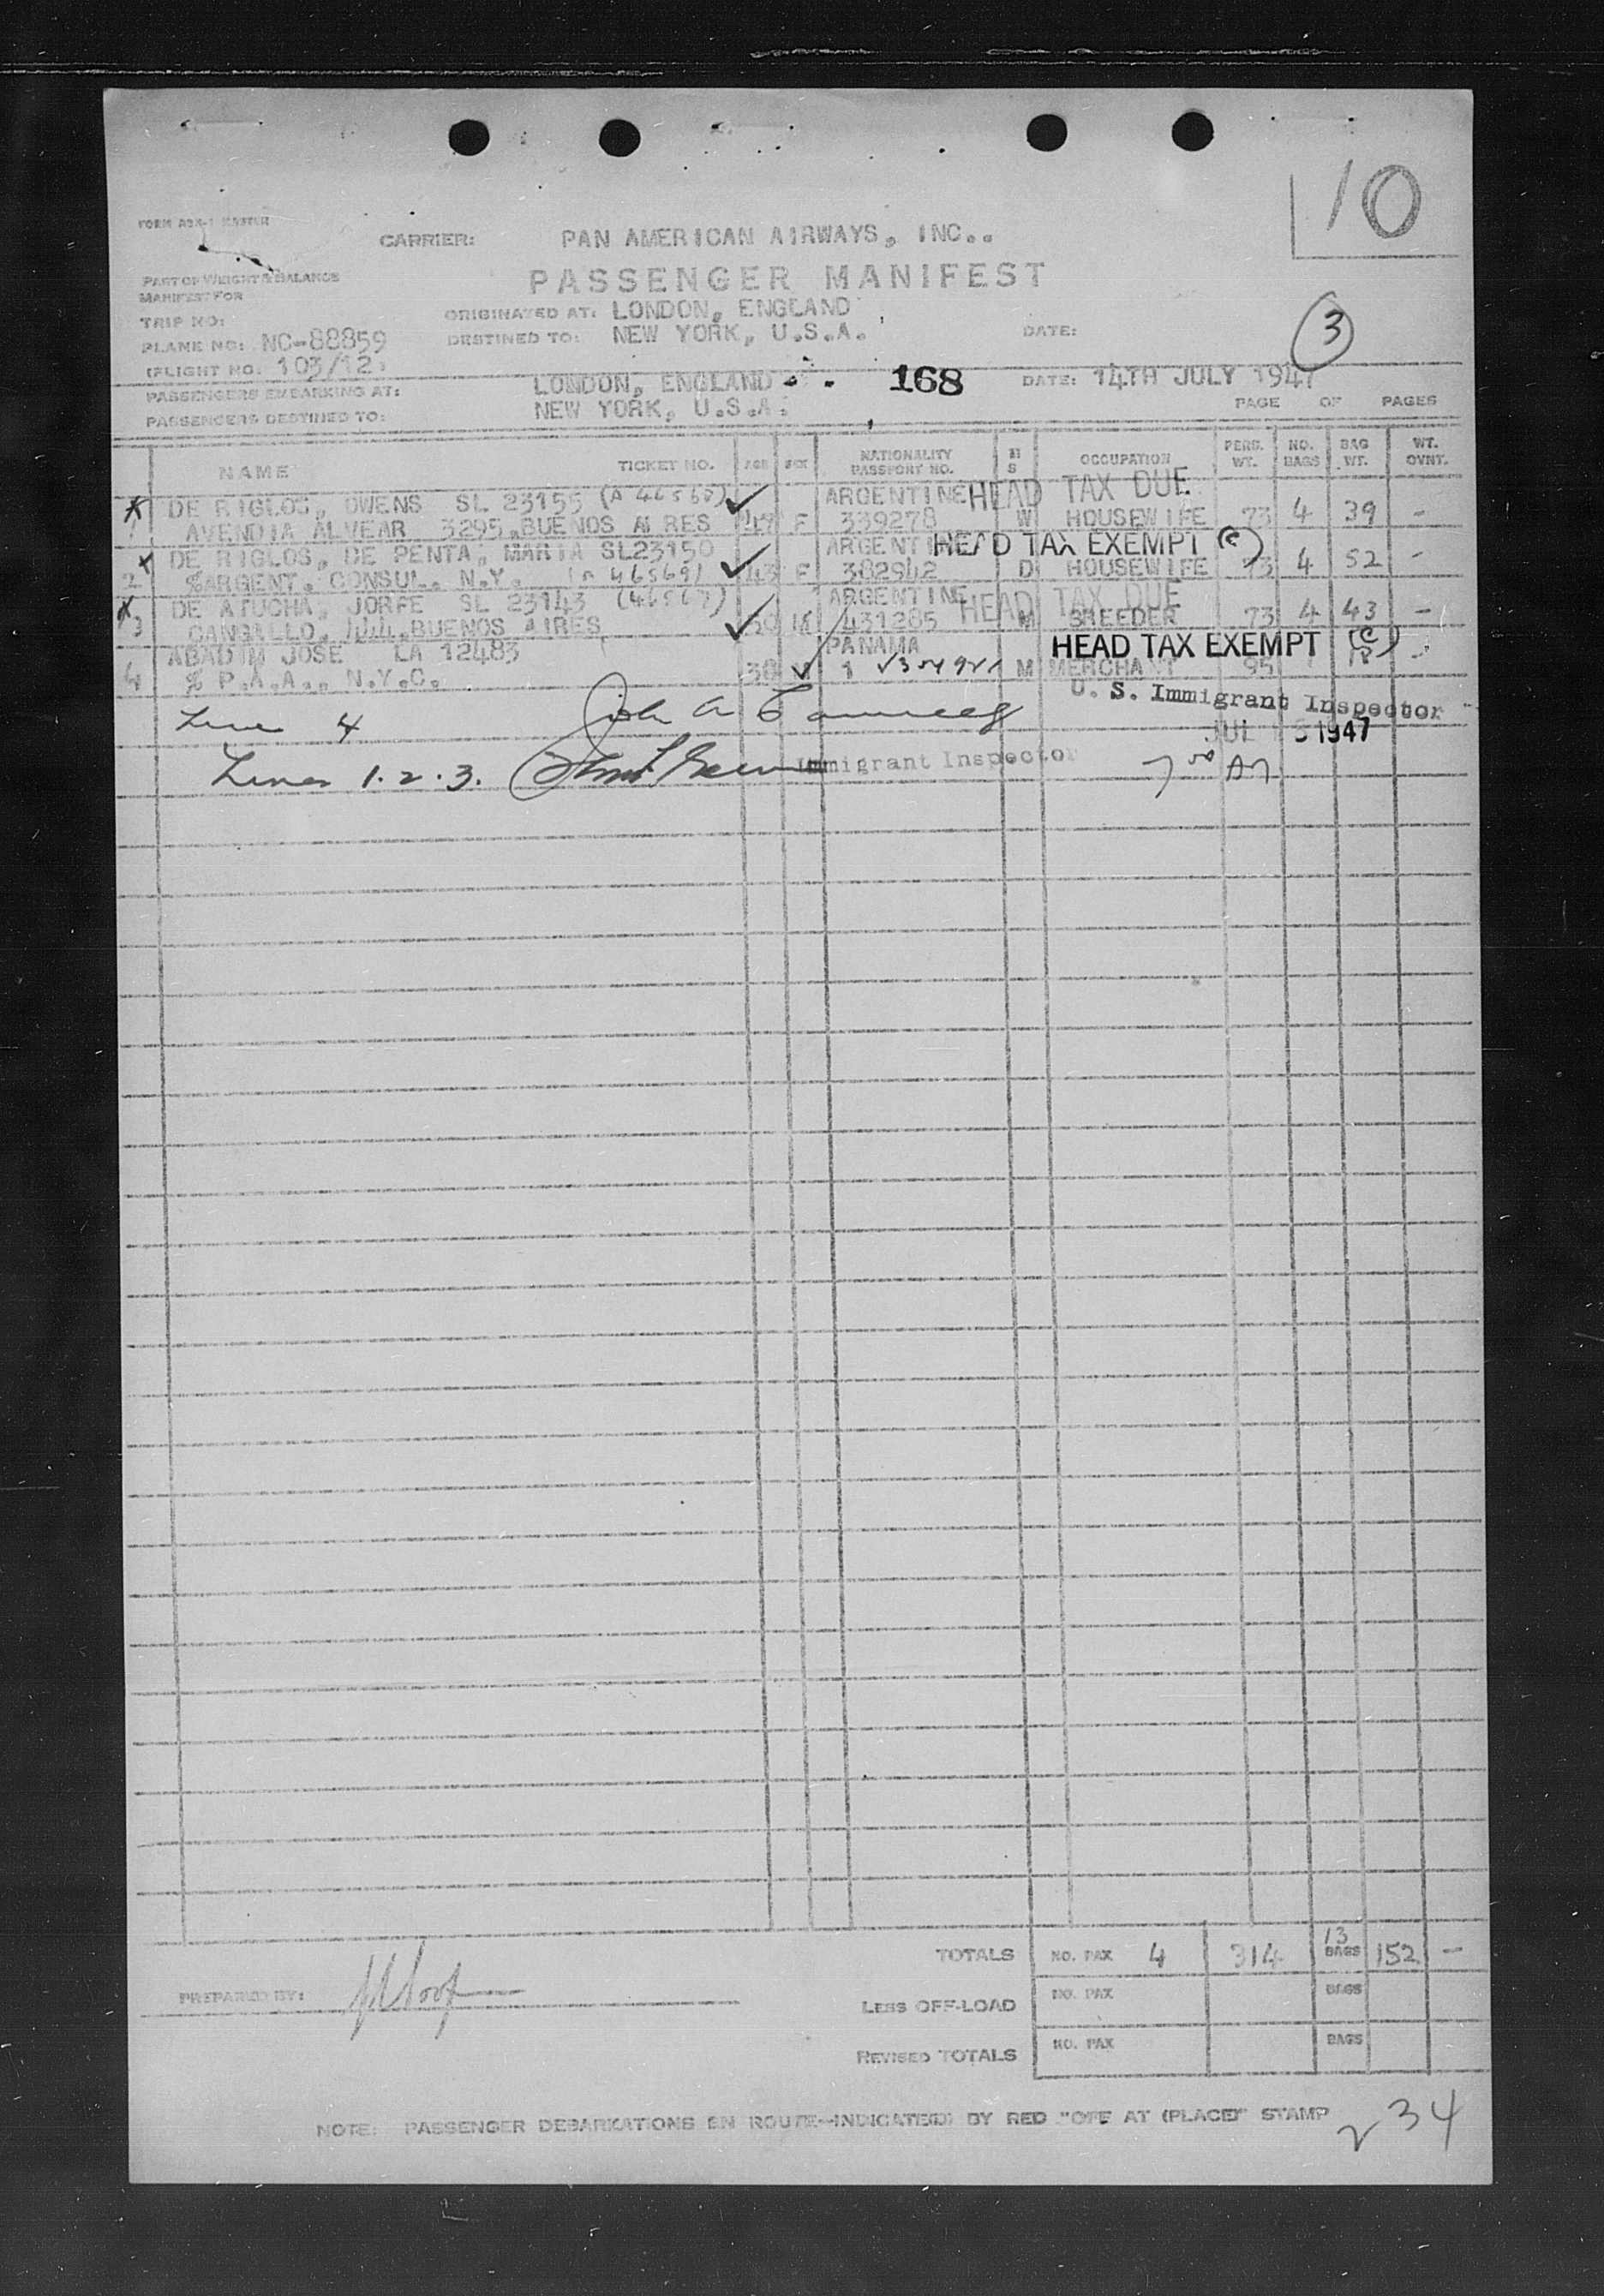 10
FORM ADX-1 MASTER
CARRIER: PAN AMERICAN AIRWAYS, INC..
PASSENGER MANIFEST
PART OF WEIGHT & BALANCE
MANIFEST FOR
ORIGINATED AT: LONDON, ENGLAND
TRIP NO:
DESTINED TO: NEW YORK, U.S.A. DATE: 3
PLANE NO: NC-88859
(FLIGHT NO. 103/12)
LONDON, ENGLAND 168 DATE: 14TH JULY 1947
PASSENGERS EMBARKING AT:
NEW YORK, U.S.A. PAGE OF PAGES
PASSENGERS DESTINED TO:
NAME TICKET NO. AGE SEX NATIONALITY PASSPORT NO. M S OCCUPATION PERS. WT. NO. BAGS BAG WT. WT. OVNT.
DE RIGLOS, OWENS SL 23155 ARGENTINE HEAD TAX DUE
1 AVENDIA ALVEAR 3295, BUENOS AIRES F 339278 W HOUSEWIFE 73 4 39 -
DE RIGLOS, DE PENTA, MARIA SL23150 HEAD TAX EXEMPT (C)
2 %ARGENT. CONSUL. N.Y. (A 46569) 43 F 382942 D HOUSEWIFE 73 4 52 -
DE ATUCHA, JORFE SL 23143 (46567) ARGENTINE HEAD TAX DUE
3 CANGALLO, 444, BUENOS AIRES M 431285 M BREEDER 73 4 43 -
ABADIM JOSE LA 12483 PANAMA HEAD TAX EXEMPT (C)
4 % P.A.A., N.Y.C. 38 M MERCHANT 95 1 18 -
U. S. Immigrant Inspector
Line 4 John A
JUL 1947
Lines 1. 2. 3. Immigrant Inspector 7 00 AM
TOTALS NO. PAX 4 314 13 BAGS 152 -
PREPARED BY:
LESS OFF-LOAD NO. PAX BAGS
REVISED TOTALS NO. PAX BAGS
NOTE: PASSENGER DEBARKATIONS EN ROUTE-INDICATED BY RED "OFF AT (PLACE)" STAMP
234